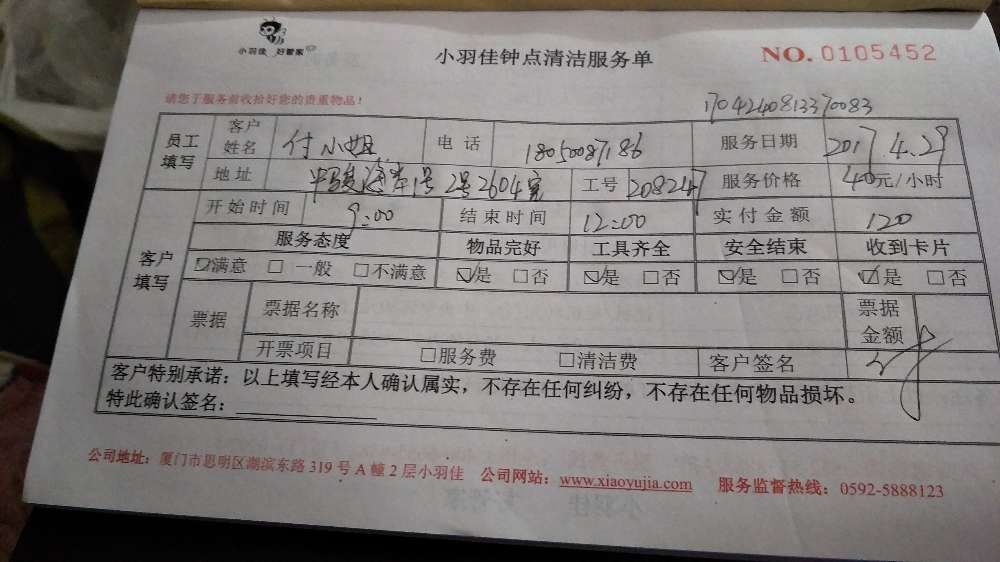 小羽佳 好管家
小羽佳钟点清洁服务单
NO. 0105452
请您于服务前收拾好您的贵重物品！
1704240813370083
员工填写 客户姓名 付小姐 电话 18050087186 服务日期 2017.4.29
地址 海岸1号2号2604室 工号 208247 服务价格 40元/小时
客户填写 开始时间 9:00 结束时间 12:00 实付金额 120
服务态度 物品完好 工具齐全 安全结束 收到卡片
☑满意 □一般 □不满意 ☑是 □否 ☑是 □否 ☑是 □否 ☑是 □否
票据 票据名称 票据金额
开票项目 □服务费 □清洁费 客户签名
客户特别承诺：以上填写经本人确认属实，不存在任何纠纷，不存在任何物品损坏。
特此确认签名：
公司地址：厦门市思明区湖滨东路319号A幢2层小羽佳 公司网站：www.xiaoyujia.com 服务监督热线：0592-5888123